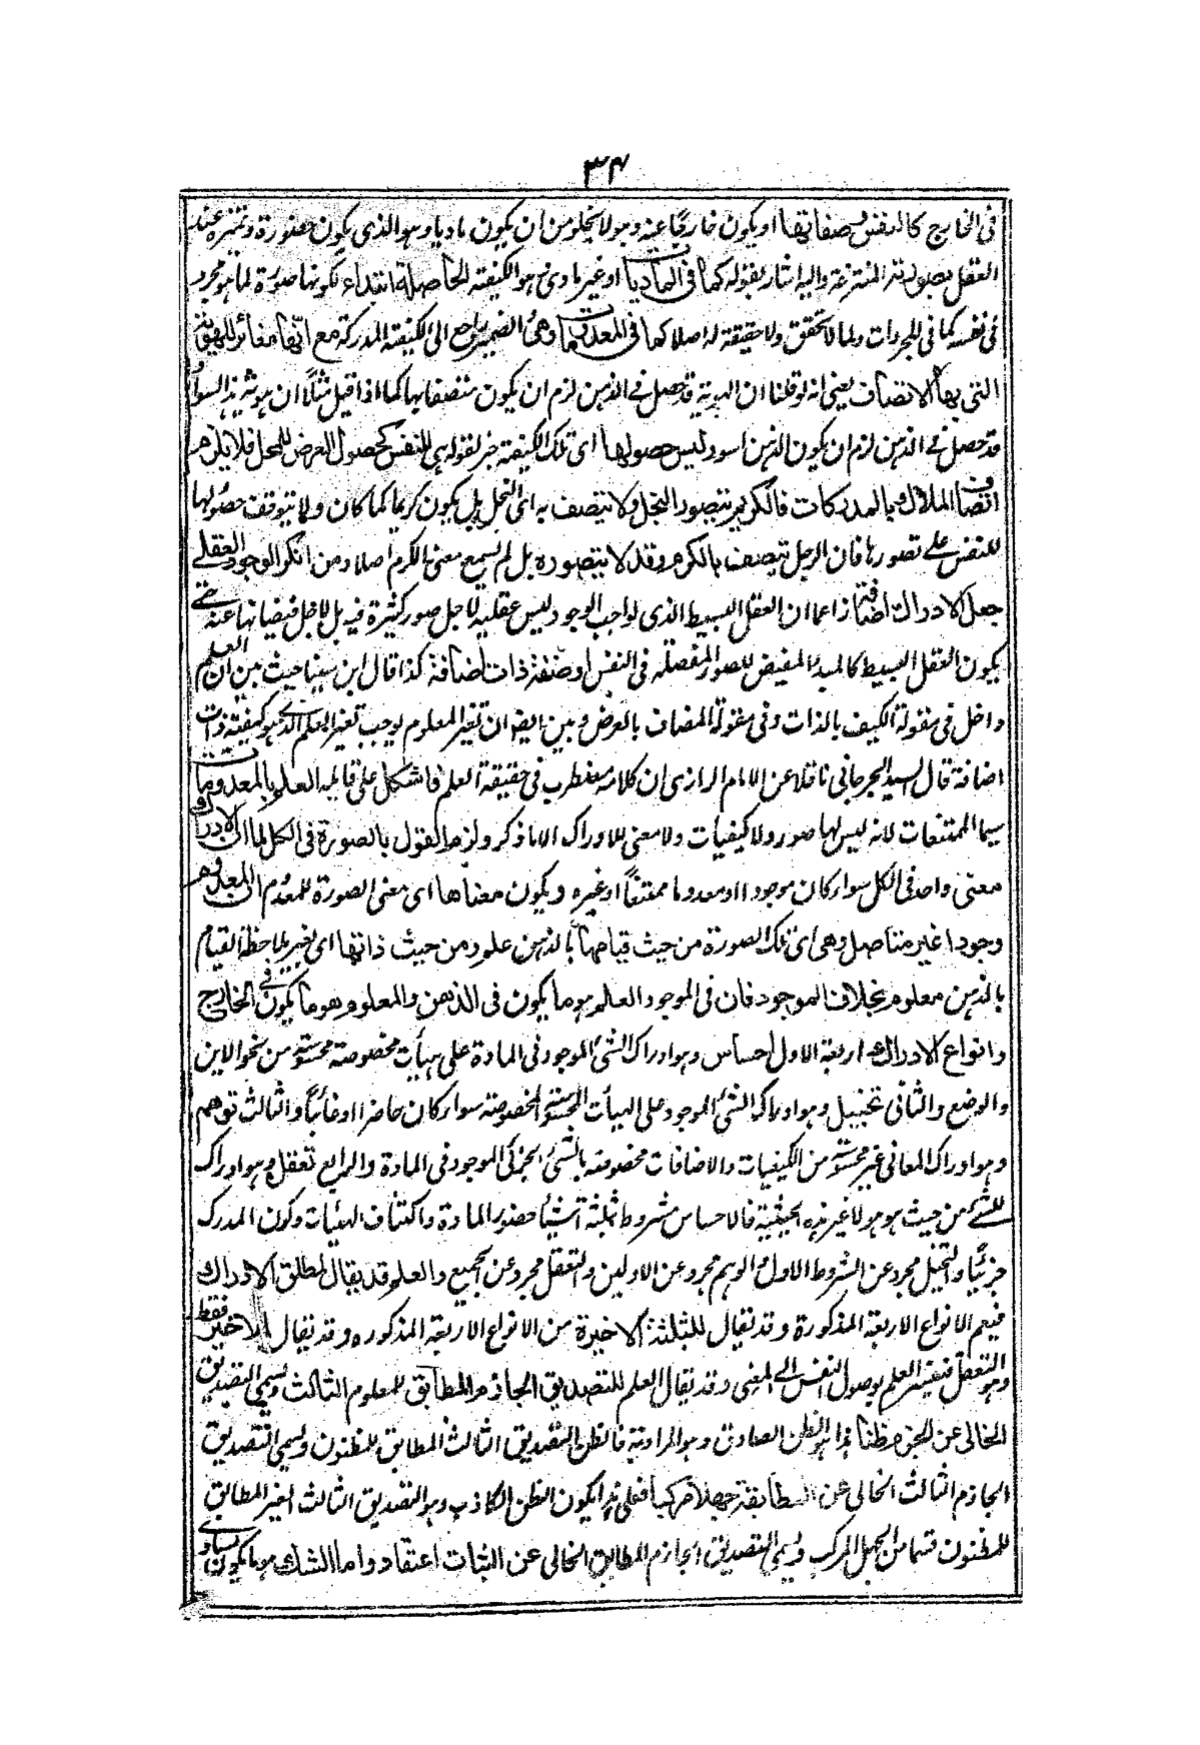 ٣٤
فى الخارج كالنفس وصفاتها او يكون خارجا عنه وهو لا يخلو من ان يكون ماديا وهو الذى يكون حضوره وتميزه عند
العقل بصورته المنتزعة واليه اشار بقوله كما فى الماديات او غير مادى هو الكيفية الحاصلة ابتداء لكونها صورة لما هو مجرد
فى نفسه كما فى المجردات ولما لا تحقق ولا حقيقة له اصلا كما فى المعدومات وهى الضمير راجع الى الكيفية المدركة مع انها مغائر للهوية
التى بها الاتصاف يعنى انه لو قلنا ان الهوية قد حصل فى الذهن لزم ان يكون متصفا بها كما اذا قيل مثلا ان هوية هذا السواد
قد حصل فى الذهن لزم ان يكون الذهن اسود وليس حصولها اى تلك الكيفية خبر لقوله هى للنفس كحصول العرض للمحل فلا يلزم
اتصاف الملاك بالمدركات فالكريم يتصور البخل ولا يتصف به اى البخل بل يكون كريما كما كان ولا يتوقف حصولها
للنفس على تصورها فان الرجل يتصف بالكرم وقد لا يتصوره بل لم يسمع معنى الكرم اصلا ومن انكر الوجود العقلى
جعل الادراك اضافة زاعما ان العقل البسيط الذى لواجب الوجود ليس عقليه لاجل صور كثيرة فيه بل لاجل فيضانها عنه حتى
يكون العقل البسيط كالمبدأ المفيض للصور المفصلة فى النفس او صفة ذات اضافة كذا قال ابن سينا حيث بين ان العلم
داخل فى مقولة الكيف بالذات وفى مقولة المضاف بالعرض وبين ايضا ان تغير المعلوم يوجب تغير العلم الذى هو كيفية ذات
اضافة قال السيد الجرجانى ناقلا عن الامام الرازى ان كلامه مضطرب فى حقيقة العلم فاشكل على قائليه العلم بالمعدومات
سيما الممتنعات لانه ليس لها صور ولا كيفيات ولا معنى للادراك الا ما ذكر ولزم القول بالصورة فى الكل لما ان الادراك
معنى واحد فى الكل سواء كان موجودا او معدوما ممتنعا او غيره ويكون معناها اى معنى الصورة للمعدوم ان المعدوم
وجودا غير متاصل وهى اى تلك الصورة من حيث قيامها بالذهن علم ومن حيث ذاتها اى بغير ملاحظة القيام
بالذهن معلوم بخلاف الموجود فان فى الموجود العلم هو ما يكون فى الذهن والمعلوم هو ما يكون فى الخارج
وانواع الادراك اربعة الاول احساس وهو ادراك الشئ الموجود فى المادة على هيأت مخصوصة محسوسة من نحو الاين
والوضع والثانى تخييل وهو ادراك الشئ الموجود على الهيأت المحسوسة المخصوصة سواء كان حاضرا او غائبا والثالث توهم
وهو ادراك المعانى غير محسوسة من الكيفيات والاضافات مخصوصة بالشئ الجزئى الموجود فى المادة والرابع تعقل وهو ادراك
للشئ من حيث هو هو لا غير هذه الحيثية فالاحساس مشروط بثلثة اشياء حضور المادة واكتناف الهيئات وكون المدرك
جزئيا والتخيل مجرد عن الشرط الاول والوهم مجرد عن الاولين والتعقل مجرد عن الجميع والعلم قد يقال لمطلق الادراك
فيعم الانواع الاربعة المذكورة وقد يقال للثلثة الاخيرة من الانواع الاربعة المذكوره وقد يقال للاخير فقط
وهو التعقل فيفسر العلم بوصول النفس الى المعنى وقد يقال العلم للتصديق الجازم المطابق للمعلوم الثالث ويسمى التصديق
الخالى عن الجزم ظنا هذا هو الظن الصادق وهو المرادبة فالظن التصديق الثالث المطابق للمظنون ويسمى التصديق
الجازم الثالث الخالى عن المطابقة جهلا مركبا فعلى هذا يكون الظن الكاذب وهو التصديق الثالث الغير المطابق
للمظنون قسما من الجهل المركب ويسمى التصديق الجازم المطابق الخالى عن الثبات اعتقاد واما الشك هو ما يكون تساوى